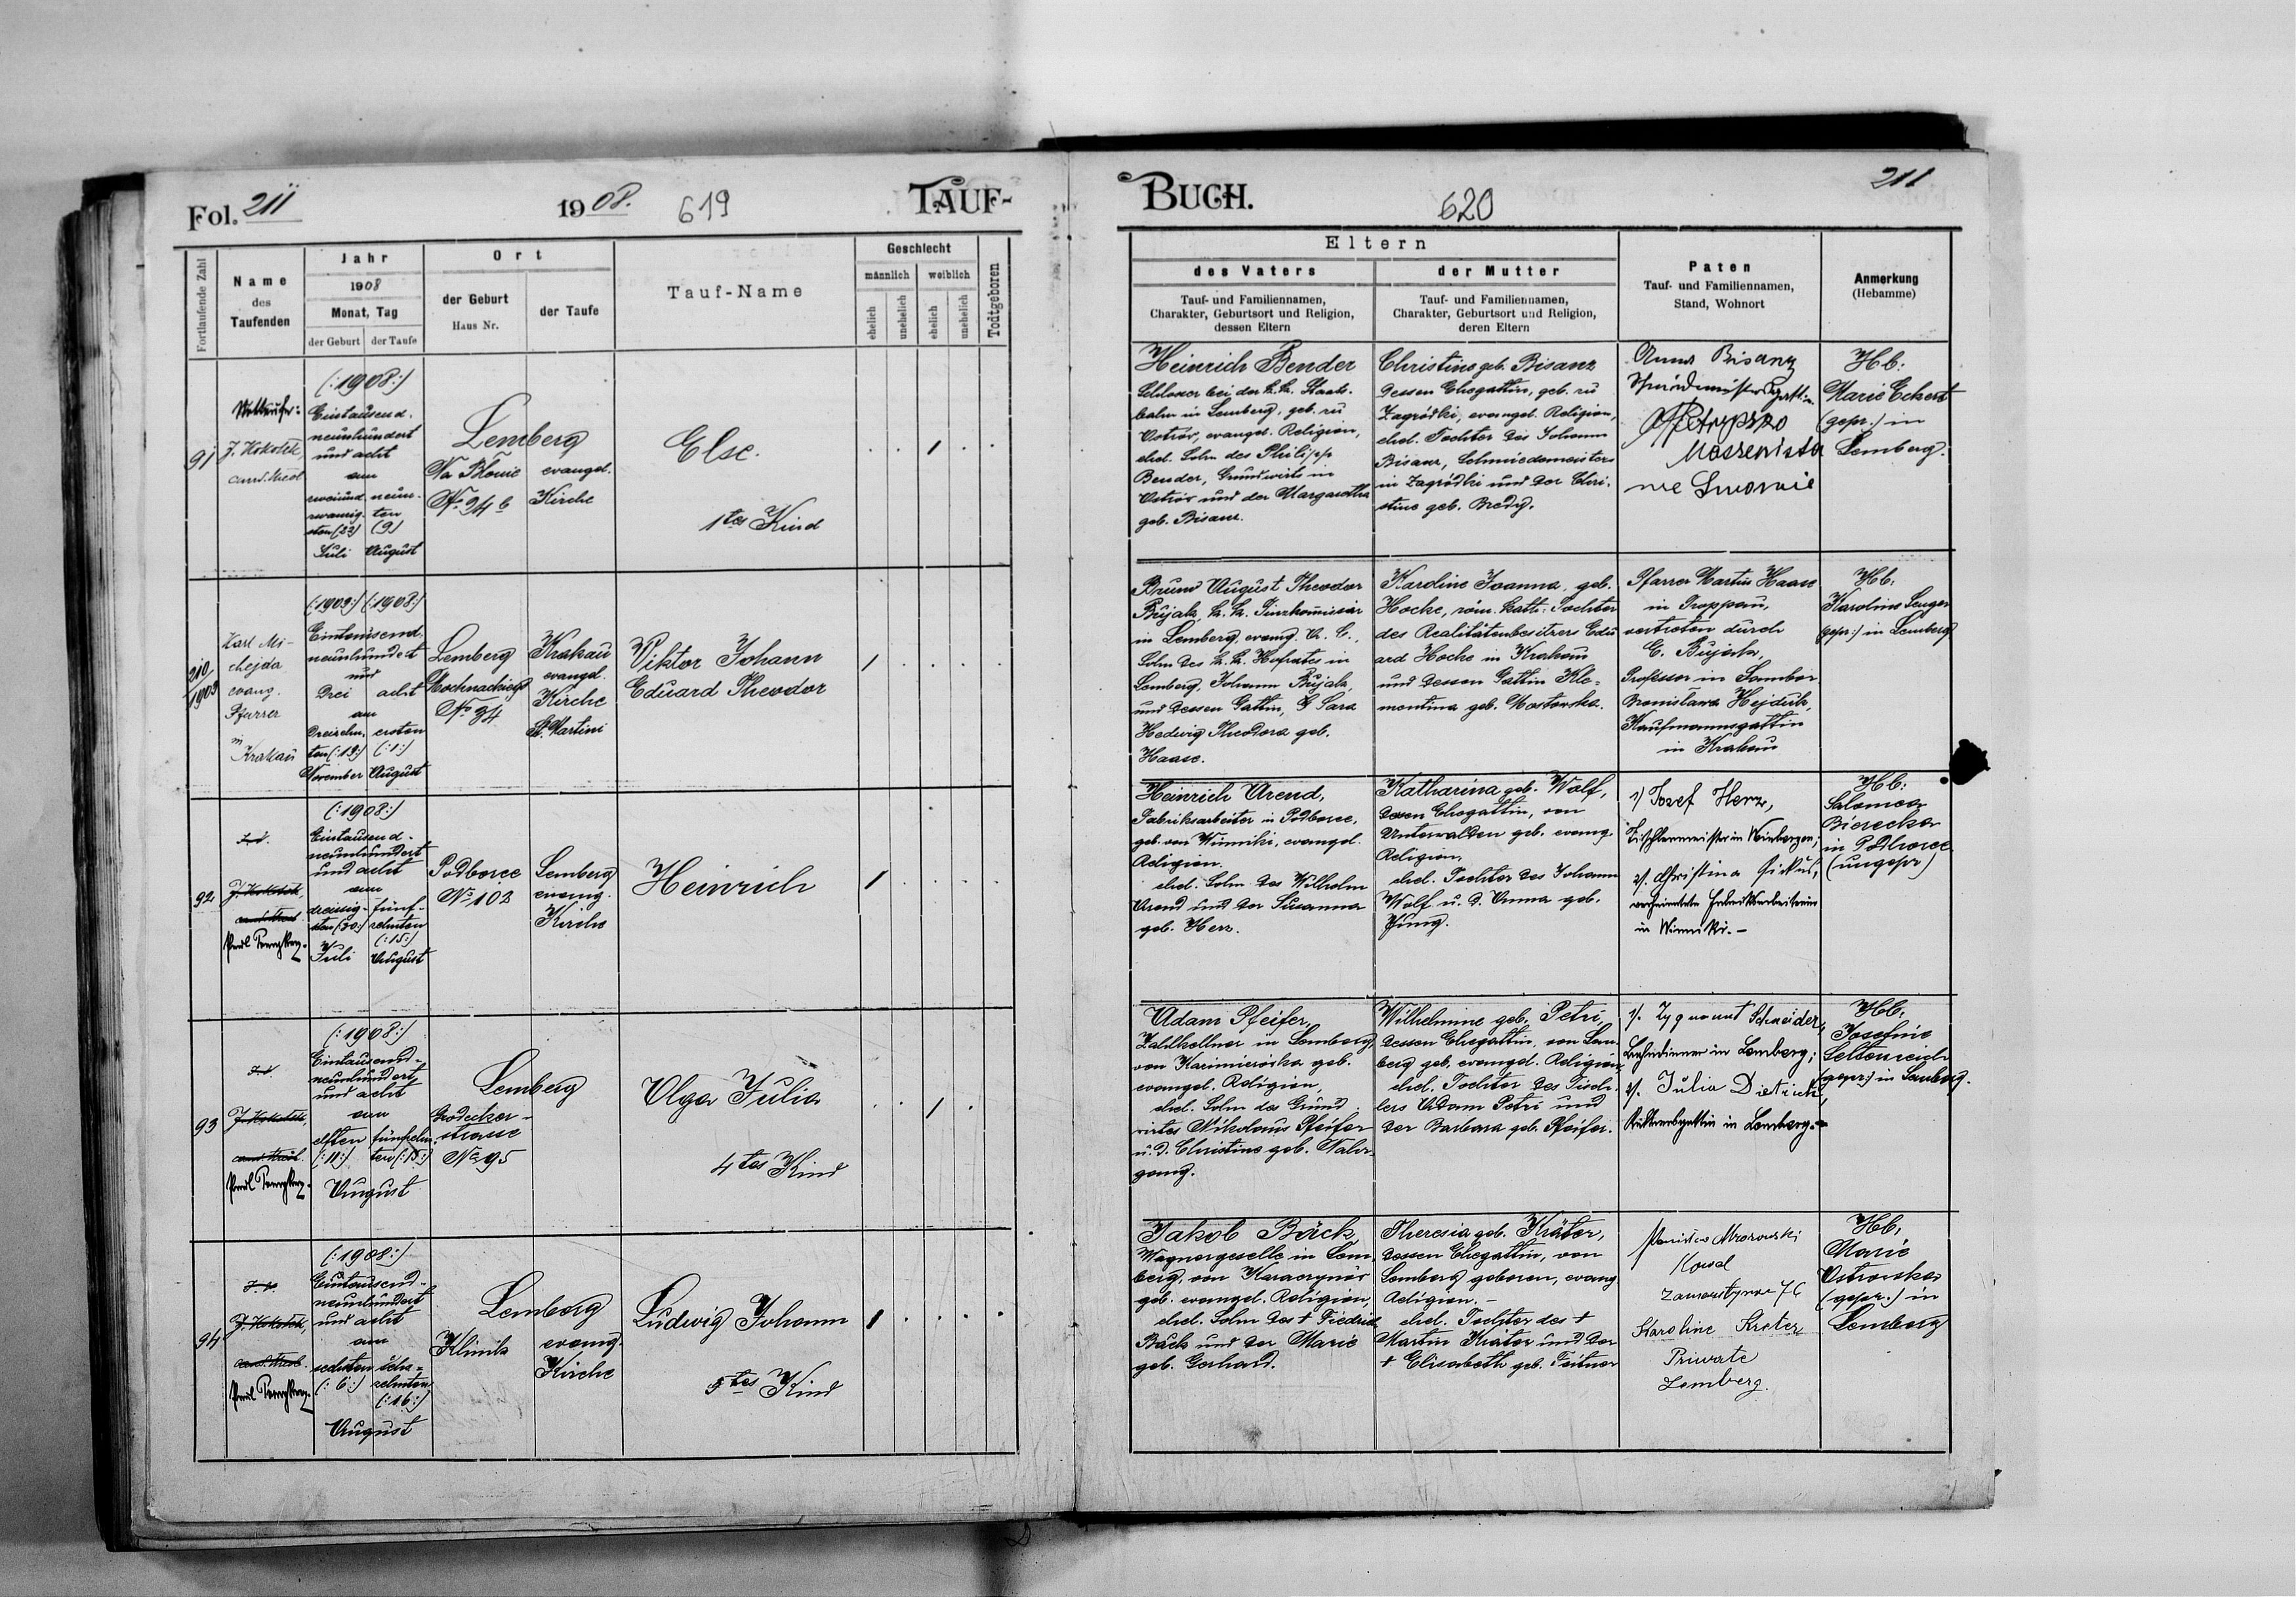 Fol. 211
1908.
619
TAUF-
Fortlaufende Zahl
Name
des
Taufenden
Jahr
1908
Monat, Tag
der Geburt
der Taufe
Ort
der Geburt
Haus Nr.
der Taufe
Tauf-Name
Geschlecht
männlich
weiblich
ehelich
unehelich
ehelich
unehelich
Todtgeboren
91
J. Kokotek,
cand. theol
(:1908:)
Eintausend-
neunhundert
und acht
am
zweiund- neun-
zwanzig- ten
sten (22) (9)
Juli August
Lemberg
Na Błonie evangel.
No 24 b Kirche
Else.
1tes Kind
1
210
1903
Karl Mi-
chejda
evang.
Pfarrer
in
Krakau
(:1903:) (:1908:)
Eintausend
neunhundert
und
drei acht
am
dreizehn- ersten
ten (:13:) (:1:)
November August
Lemberg
No 34
Krakau
evangel.
Kirche
St. Martini
Viktor Johann
Eduard Theodor
1
92
J. Kokotek,
cand. theol
(:1908:)
Eintausend-
neunhundert
und acht
am
dreissig- fünf-
sten (:30:) zehnten
(:15:)
Juli August
Podborce
No 102
Lemberg
evang.
Kirche
Heinrich
1
93
J. Kokotek,
cand. theol.
(:1908:)
Eintausend-
neunhundert
und acht
am
elften fünfzehn-
(:11:) ten (:15:)
August
Lemberg
Grodecker-
strasse
No 95
Olga Julia
4tes Kind
1
94
J. Kokotek,
cand. theol.
(:1908:)
Eintausend-
neunhundert
und acht
am
sechsten sech-
(:6:) zehnten
(:16:)
August
Lemberg
Klinik evang.
Kirche
Ludwig Johann
5tes Kind
1
BUCH.
620
211
Eltern
des Vaters
Tauf- und Familiennamen,
Charakter, Geburtsort und Religion,
dessen Eltern
der Mutter
Tauf- und Familiennamen,
Charakter, Geburtsort und Religion,
deren Eltern
Paten
Tauf- und Familiennamen,
Stand, Wohnort
Anmerkung
(Hebamme)
Heinrich Bender
Schlosser bei der k.k. Staats-
bahn in Lemberg, geb. zu
Ostrów, evangel. Religion,
ehel. Sohn des Philipp
Bender, Grundwirts in
Ostrów und der Margaretha
geb. Bisanz.
Christine geb. Bisanz
dessen Ehegattin, geb. zu
Zagródki, evangel. Religion,
ehel. Tochter des Johann
Bisanz, Schmiedemeisters
in Zagródki und der Chri-
stine geb. Bredy.
Anna Bisanz
Schmiedmeistersgattin.
Maszenista
we Lwowie
Hb:
Marie Eckert
(gepr:) in
Lemberg.
Bruno August Theodor
Bujak, k. k. Finzkommissär
in Lemberg, evang. A. C.,
Sohn des k. k. Hofrates in
Lemberg, Johann Bujak,
und dessen Gattin, Sara
Hedwig Theodora geb.
Haase.
Karoline Joanna, geb.
Hocke, röm. kath. Tochter
des Realitätenbesitzers Edu
ard Hocke in Krakau
und dessen Gattin Kle-
mentina geb. Mostowska.
Pfarrer Martin Haase
in Troppau,
vertreten durch
E. Bujak,
Professor in Sambor
Bronislawa Hejduk,
Kaufmannsgattin
in Krakau
Hb:
Karoline Senger
(gepr:) in Lemberg
Heinrich Arend,
Fabriksarbeiter in Podborce,
geb. von Winniki, evangel.
Religion.
ehel. Sohn des Wilhelm
Arend und der Susanna
geb. Herz.
Katharina geb. Wolf,
dessen Ehegattin, von
Unterwalden geb. evang.
Religion,
ehel. Tochter des Johann
Wolf u. d. Anna geb.
Jung.
1) Josef Herz,
Tischlermeister in Weinbergen;
2). Christina
verheiratete Fabriksarbeiterin
in Winniki.-
Hb:
Salomea
Bierecka
in Podborce
(ungepr)
Adam Pfeifer,
Zahlkellner in Lemberg,
von Kazimierówka geb.
evangel. Religion,
ehel. Sohn des Grund-
wirtes Nikolaus Pfeifer
u. d. Christine geb. Wahr-
gang.
Wilhelmine geb. Petri,
dessen Ehegattin, von Lem-
berg geb. evangel. Religion,
ehel. Tochter des Tisch-
lers Adam Petri und
der Barbara geb. Pfeifer.
1). Zygmunt Schneider,
Bahndiener in Lemberg;
2). Julia Dietrich,
in Lemberg.-
Hb,
Josefine
Seltenreich
(gepr:) in Lemberg.
Jakob Bäck
Wagnergeselle in Lem-
berg, von Karaczynów
geb. evangel. Religion,
ehel. Sohn des + Friedrich
Bäck und der Marie
geb. Gerhard.
Theresia geb. Kräter,
dessen Ehegattin, von
Lemberg geboren, evang
Religion.-
ehel. Tochter des +
Martin Kräter und der
+ Elisabeth geb. Feitner
Stanisław Mrozowski
Kowal
Zamarstynow 76
Karoline Krater
Private
Lemberg.
Hb,
Marie
Ostrowska
(gepr.) in
Lemberg